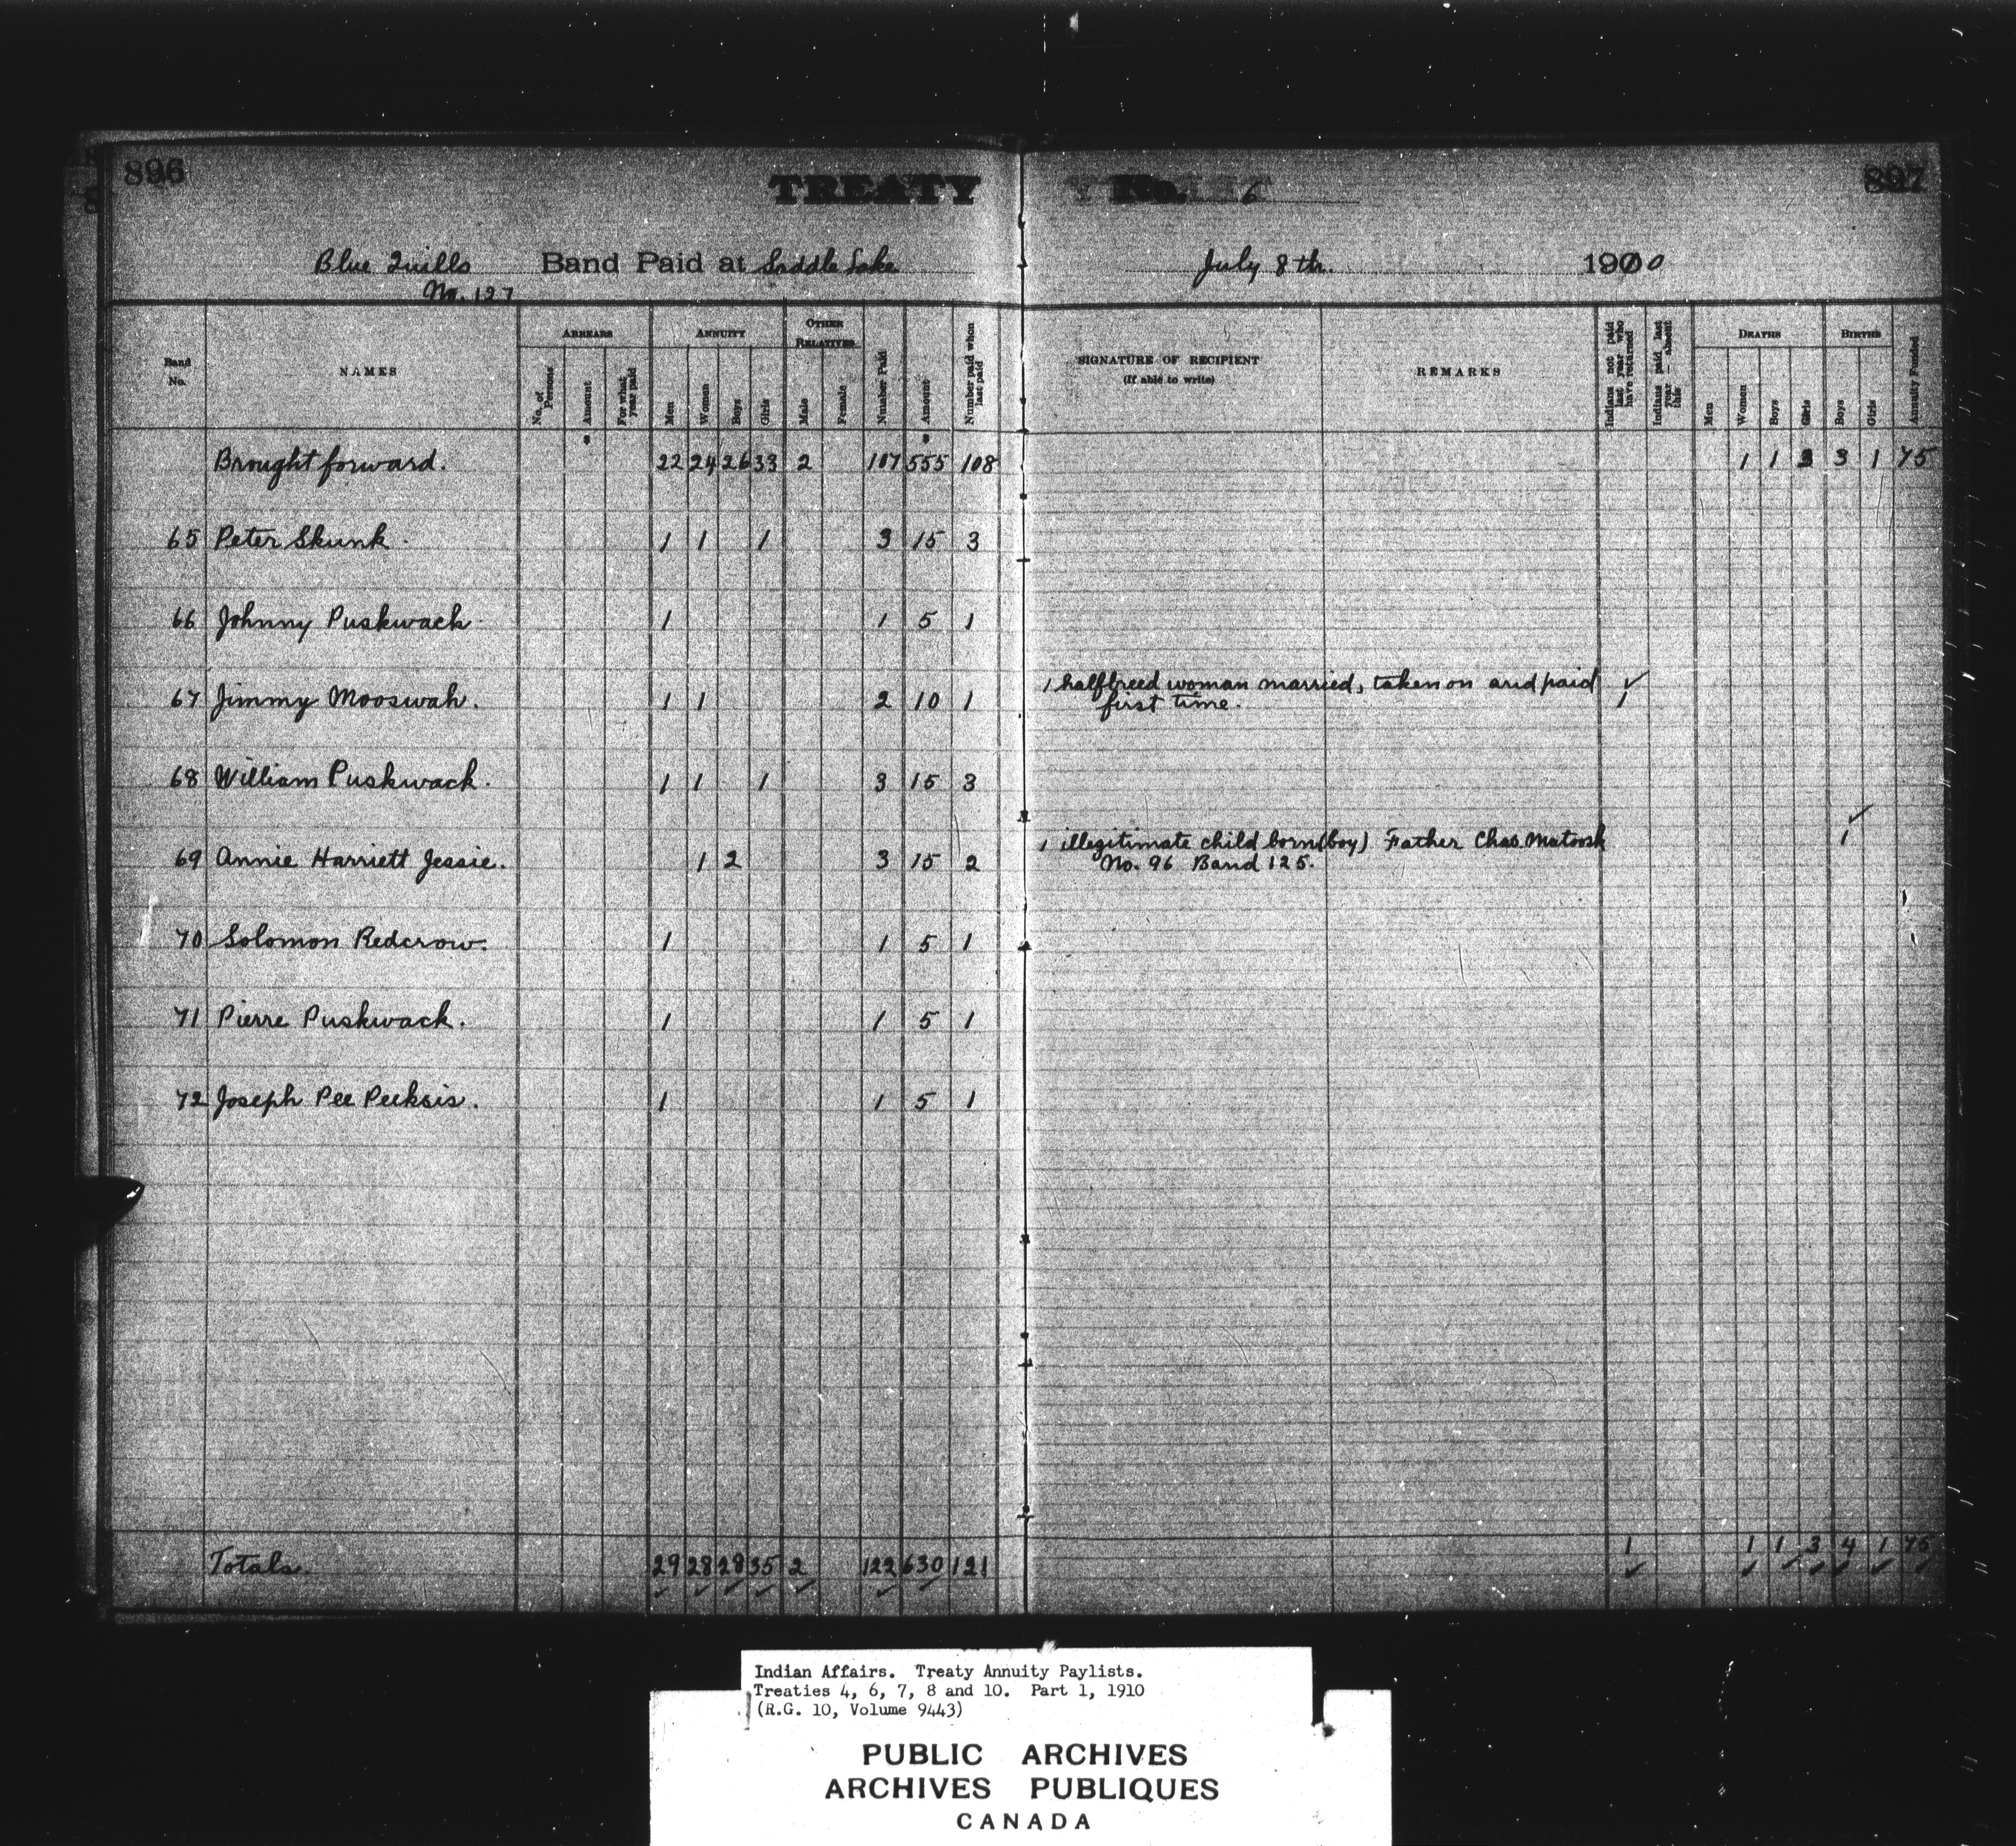 896
897
TREATY No. 6
Blue Quills Band Paid at Saddle Lake July 8th. 1900
No. 127
Band No. NAMES ARREARS No. of Persons Amount For what year paid ANNUITY Men Women Boys Girls OTHER RELATIVES Male Female Number Paid Amount Number paid when last paid SIGNATURE OF RECIPIENT (If able to write) REMARKS Indians not paid last year who have returned Indians paid last year—absent this DEATHS Men Women Boys Girls BIRTHS Boys Girls Annuity Funded
Brought forward. 22 24 26 33 2 107 555 108 1 1 3 3 1 75
65 Peter Skunk. 1 1 1 3 15 3
66 Johnny Puskwack 1 1 5 1
67 Jimmy Mooswah. 1 1 2 10 1 1 halfbreed woman married, taken on and paid 1
first time.
68 William Puskwack. 1 1 1 3 15 3
69 Annie Harriett Jessie. 1 2 3 15 2 1 illegitimate child born (boy) Father Chas. Matoosk 1
No. 96 Band 125.
70 Solomon Redcrow. 1 1 5 1
71 Pierre Puskwack. 1 1 5 1
72 Joseph Pee Peeksis. 1 1 5 1
Totals. 29 28 28 35 2 122 630 121 1 1 1 3 4 1 75
Indian Affairs. Treaty Annuity Paylists.
Treaties 4, 6, 7, 8 and 10. Part 1, 1910
(R.G. 10, Volume 9443)
PUBLIC ARCHIVES
ARCHIVES PUBLIQUES
CANADA